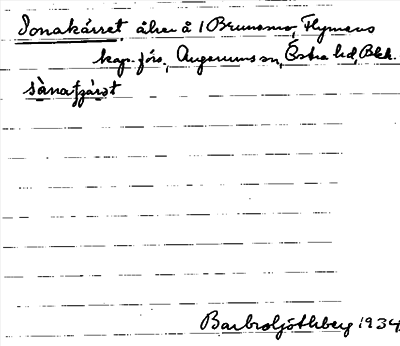 Sonakärret åker å 1 Brunsmo, Flymens
kap. förs., Augerums sn, Östra hd, Blek.
Barbro Ljöthberg 1934